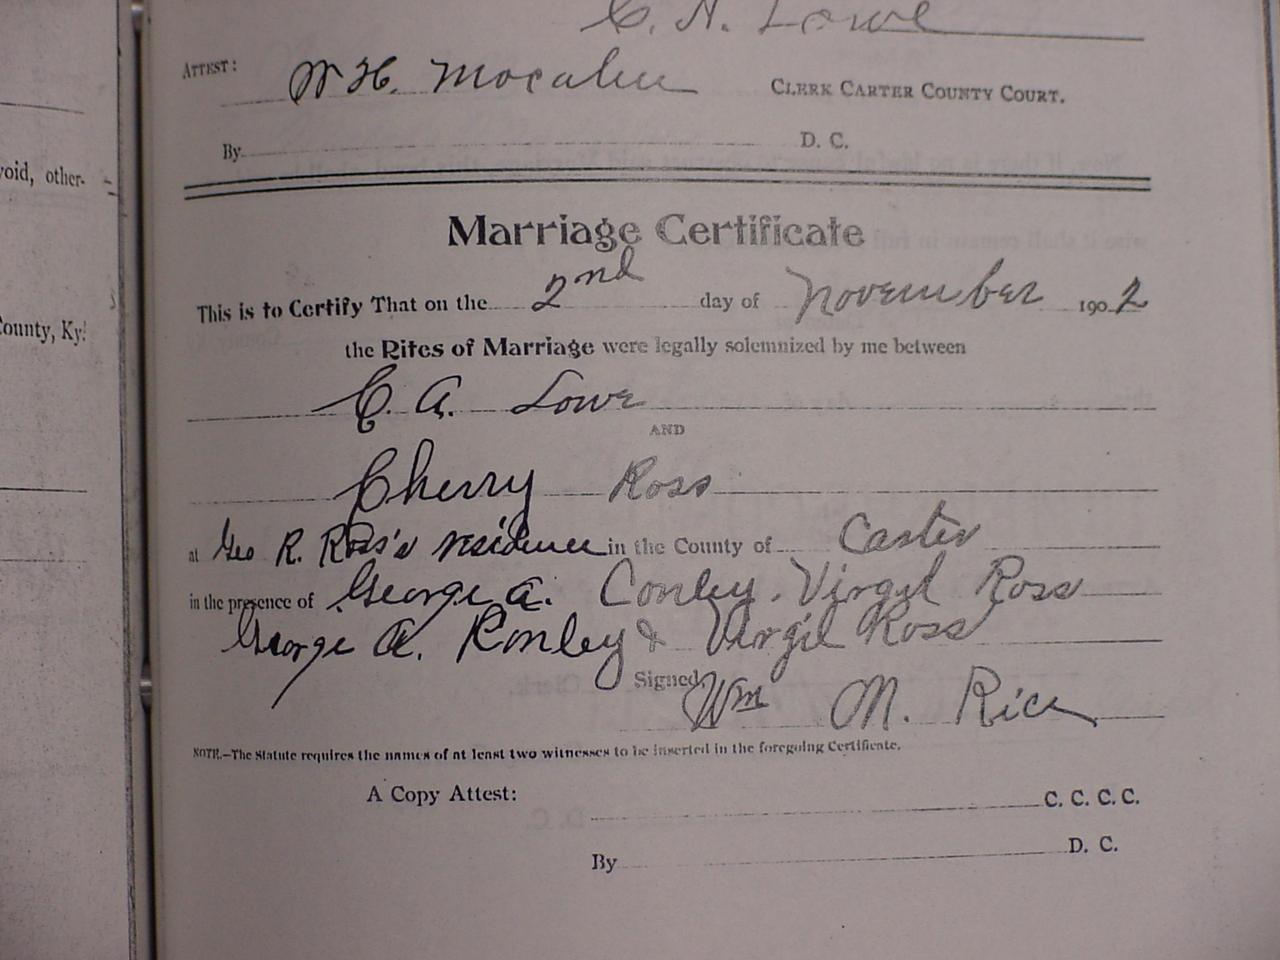 C. A. Lowe
ATTEST: W H. Mocabee CLERK CARTER COUNTY COURT.
By D. C.
void, other-
Marriage Certificate
This is to Certify That on the 2nd day of November 1902
County, Ky.
the Rites of Marriage were legally solemnized by me between
C. A. Lowe
AND
Cherry Ross
at Geo R. Ross's residence in the County of Carter
in the presence of George A. Conley. Virgil Ross
George A. Konley & Virgil Ross
Signed, Wm M. Rice
NOTE.—The Statute requires the names of at least two witnesses to be inserted in the foregoing Certificate.
A Copy Attest: C. C. C. C.
By D. C.